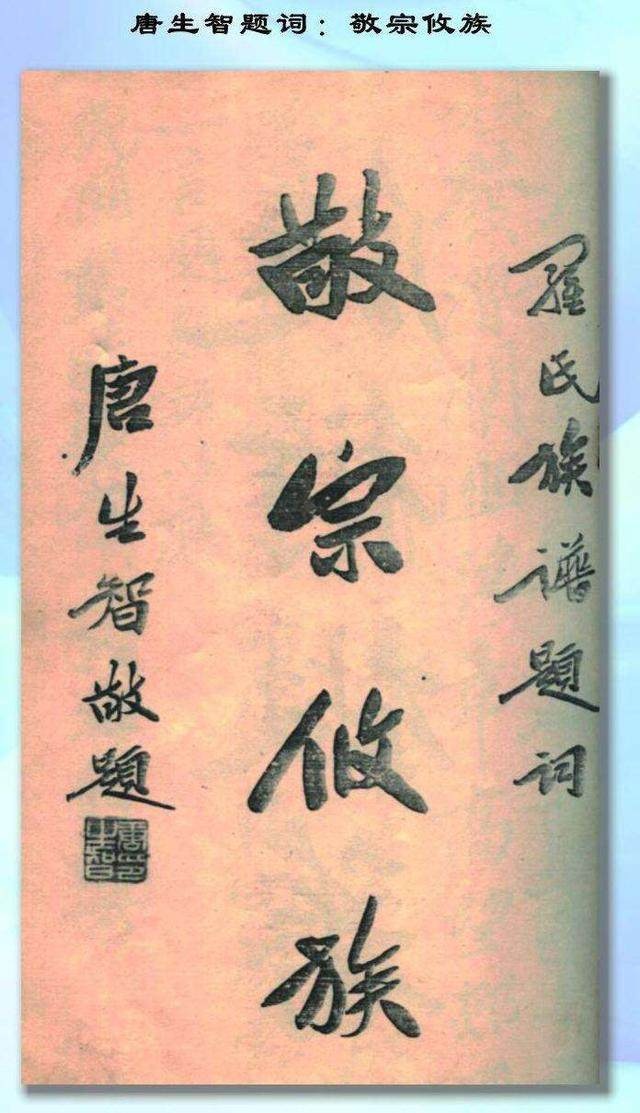 唐生智题词：敬宗攸族
羅氏族譜題詞
敬宗攸族
唐生智敬題
唐生智印